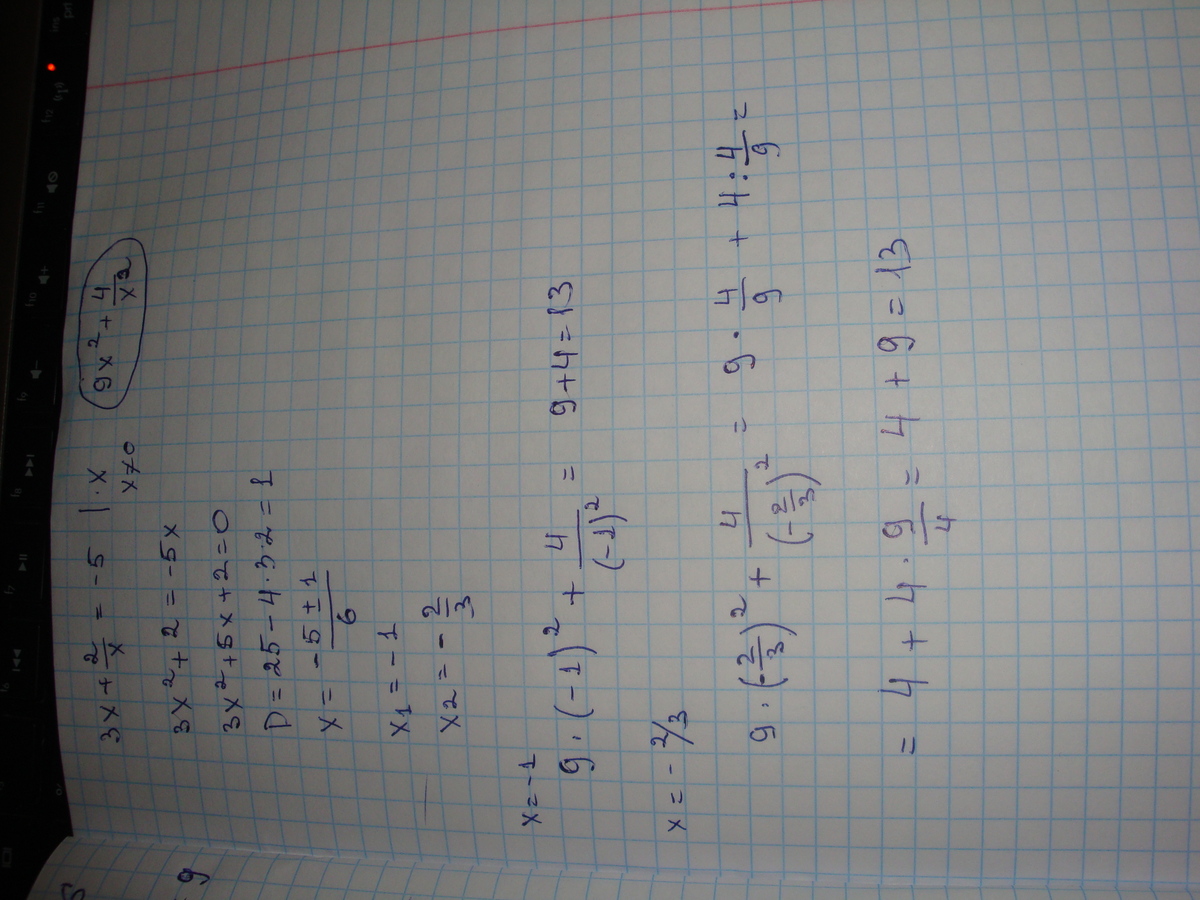 3x + 2/x = -5 | · x   9x² + 4/x²
x≠0
3x² + 2 = -5x
3x² + 5x + 2 = 0
D = 25 - 4·3·2 = 1
x = -5 ± 1 / 6
x1 = -1
x2 = - 2/3
x = -1
9 · (-1)² + 4/(-1)² = 9 + 4 = 13
x = - 2/3
9 · (-2/3)² + 4/(-2/3)² = 9 · 4/9 + 4 : 4/9 =
= 4 + 4 · 9/4 = 4 + 9 = 13
9